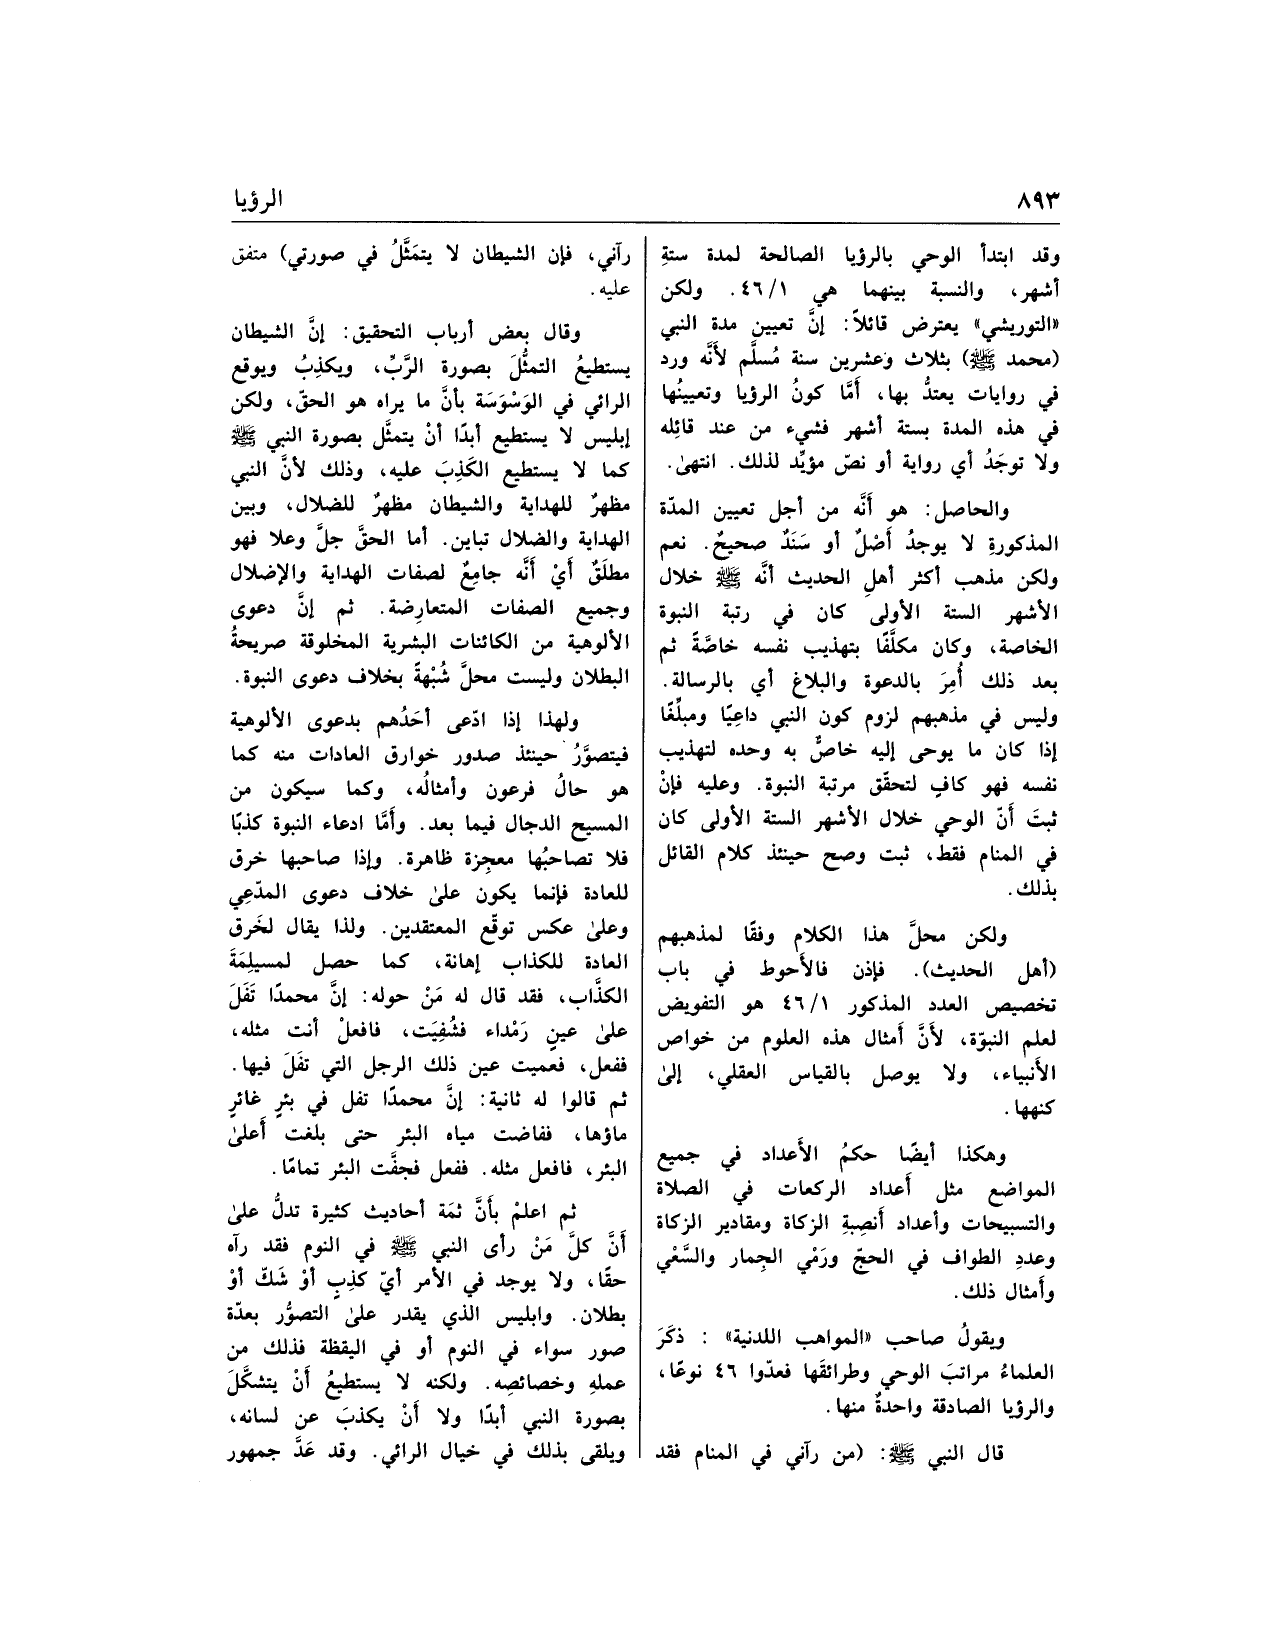 ٨٩٣
الرؤيا
وقد ابتدأ الوحي بالرؤيا الصالحة لمدة ستةِ
أشهر، والنسبة بينهما هي ٤٦/١. ولكن
«التوريشي» يعترض قائلاً: إنَّ تعيين مدة النبي
(محمد ﷺ) بثلاث وعشرين سنة مُسلَّم لأنَّه ورد
في روايات يعتدُّ بها، أمَّا كونُ الرؤيا وتعيينُها
في هذه المدة بستة أشهر فشيء من عند قائِله
ولا توجَدُ أي رواية أو نصّ مؤيِّد لذلك. انتهىٰ.
والحاصل: هو أنَّه من أجل تعيين المدّة
المذكورةِ لا يوجدُ أَصْلٌ أو سَنَدٌ صحيحٌ. نعم
ولكن مذهب أكثر أهلِ الحديث أنَّه ﷺ خلال
الأشهر الستة الأولى كان في رتبة النبوة
الخاصة، وكان مكلَّفًا بتهذيب نفسه خاصَّةً ثم
بعد ذلك أُمِرَ بالدعوة والبلاغ أي بالرسالة.
وليس في مذهبهم لزوم كون النبي داعِيًا ومبلِّغًا
إذا كان ما يوحى إليه خاصٌّ به وحده لتهذيب
نفسه فهو كافٍ لتحقّق مرتبة النبوة. وعليه فإنْ
ثبتَ أنّ الوحي خلال الأشهر الستة الأولى كان
في المنام فقط، ثبت وصح حينئذ كلام القائل
بذلك.
ولكن محلَّ هذا الكلام وفقًا لمذهبهم
(أهل الحديث). فإذن فالأحوط في باب
تخصيص العدد المذكور ٤٦/١ هو التفويض
لعلم النبوّة، لأنَّ أمثال هذه العلوم من خواص
الأنبياء، ولا يوصل بالقياس العقلي، إلىٰ
كنهها.
وهكذا أيضًا حكمُ الأعداد في جميع
المواضع مثل أعداد الركعات في الصلاة
والتسبيحات وأعداد أَنصِبةِ الزكاة ومقادير الزكاة
وعددِ الطواف في الحجّ ورَمْي الجِمار والسَّعْي
وأمثال ذلك.
ويقولُ صاحب «المواهب اللدنية» : ذكَرَ
العلماءُ مراتبَ الوحي وطرائقَها فعدّوا ٤٦ نوعًا،
والرؤيا الصادقة واحدةٌ منها.
قال النبي ﷺ: (من رآني في المنام فقد
رآني، فإن الشيطان لا يتمَثَّلُ في صورتي) متفق
عليه.
وقال بعض أرباب التحقيق: إنَّ الشيطان
يستطيعُ التمثُّلَ بصورة الرَّبّ، ويكذِبُ ويوقع
الرائي في الوَسْوَسَة بأنَّ ما يراه هو الحقّ، ولكن
إبليس لا يستطيع أبدًا أنْ يتمثَّل بصورة النبي ﷺ
كما لا يستطيع الكَذِبَ عليه، وذلك لأنَّ النبي
مظهرٌ للهداية والشيطان مظهرٌ للضلال، وبين
الهداية والضلال تباين. أما الحقَّ جلَّ وعلا فهو
مطلَقٌ أيْ أنَّه جامِعٌ لصفات الهداية والإضلال
وجميع الصفات المتعارِضة. ثم إنَّ دعوى
الألوهية من الكائنات البشرية المخلوقة صريحةُ
البطلان وليست محلَّ شُبْهةً بخلاف دعوى النبوة.
ولهذا إذا ادّعى أحَدُهم بدعوى الألوهية
فيتصوَّرُ حينئذ صدور خوارق العادات منه كما
هو حالُ فرعون وأمثالُه، وكما سيكون من
المسيح الدجال فيما بعد. وأمَّا ادعاء النبوة كذبًا
فلا تصاحبُها معجِزة ظاهرة. وإذا صاحبها خرق
للعادة فإنما يكون علىٰ خلاف دعوى المدّعِي
وعلىٰ عكس توقّع المعتقدين. ولذا يقال لخَرق
العادة للكذاب إهانة، كما حصل لمسيلِمَةَ
الكذَّاب، فقد قال له مَنْ حوله: إنَّ محمدًا تَفَلَ
علىٰ عينٍ رَمْداء فشُفِيَت، فافعلْ أنت مثله،
ففعل، فعميت عين ذلك الرجل التي تفَلَ فيها.
ثم قالوا له ثانية: إنَّ محمدًا تفل في بئرٍ غائرٍ
ماؤها، ففاضت مياه البئر حتى بلغت أعلىٰ
البئر، فافعل مثله. ففعل فجفَّت البئر تمامًا.
ثم اعلمْ بأنَّ ثمَة أحاديث كثيرة تدلُّ علىٰ
أنَّ كلَّ مَنْ رأى النبي ﷺ في النوم فقد رآه
حقًا، ولا يوجد في الأمر أيّ كذِبٍ أوْ شَكّ أوْ
بطلان. وابليس الذي يقدر علىٰ التصوُّر بعدّة
صور سواء في النوم أو في اليقظة فذلك من
عملهِ وخصائصِه. ولكنه لا يستطيعُ أنْ يتشكَّلَ
بصورة النبي أبدًا ولا أنْ يكذبَ عن لسانه،
ويلقى بذلك في خيال الرائي. وقد عَدَّ جمهور